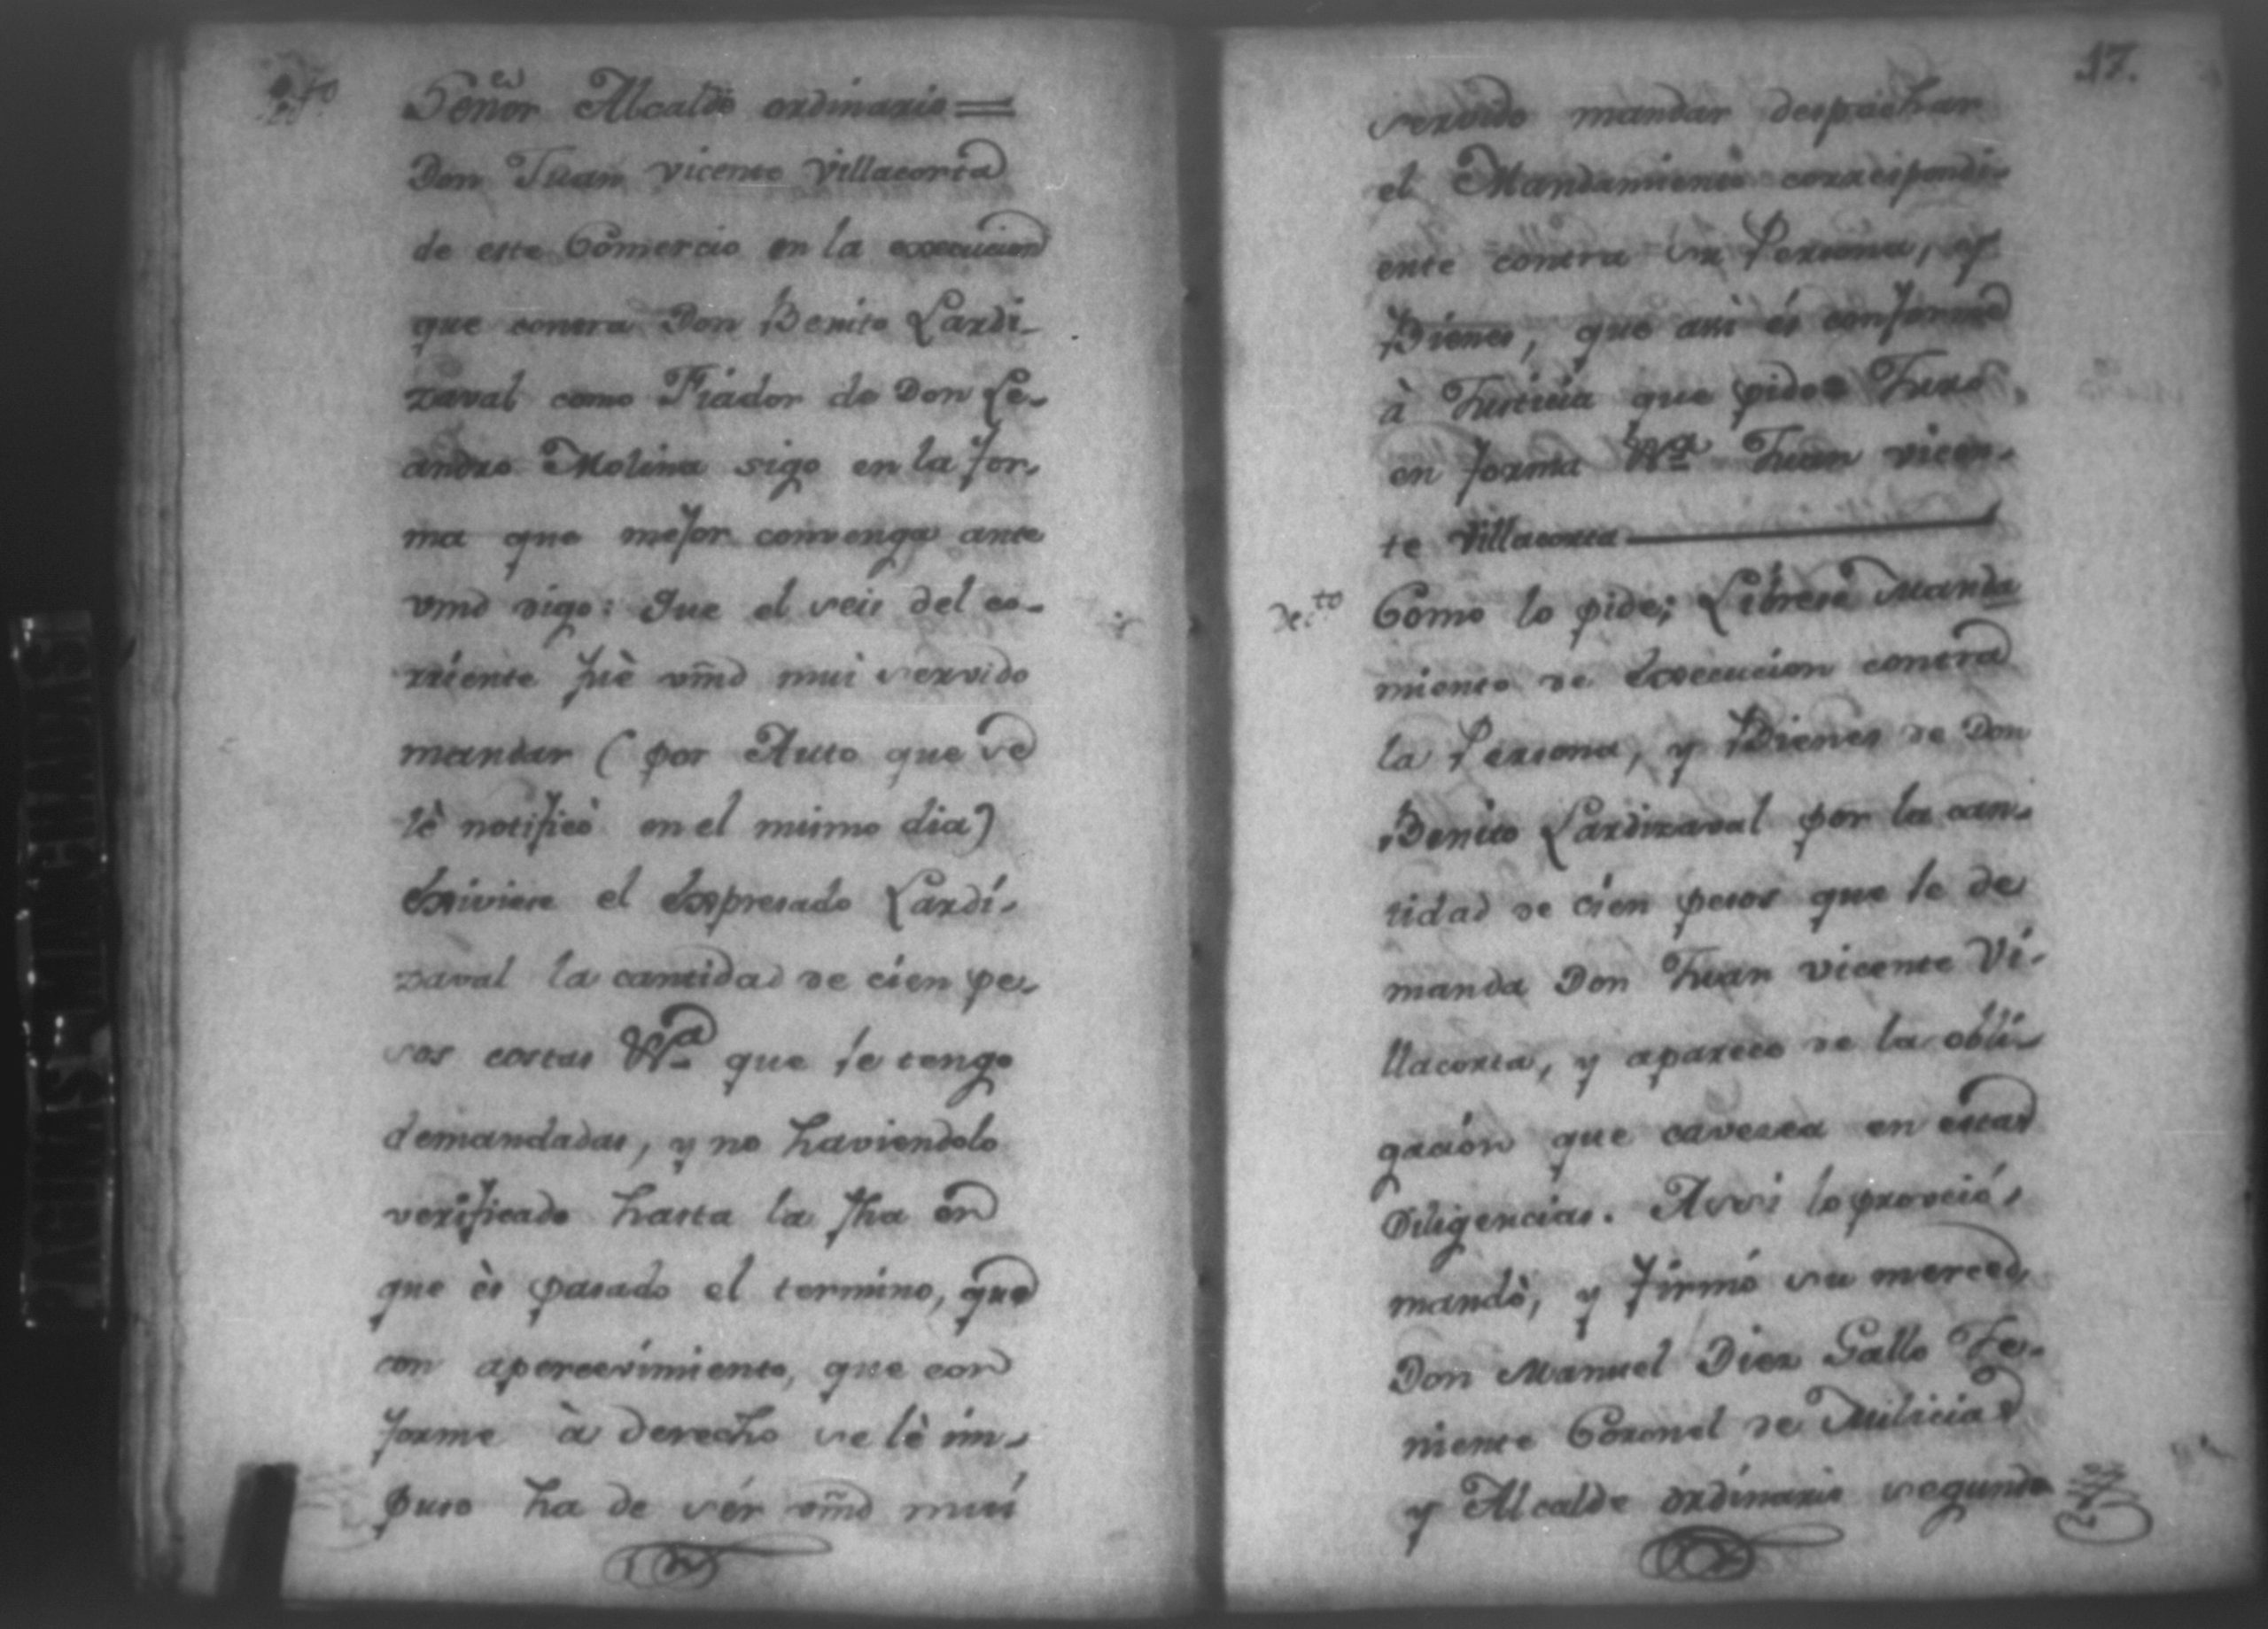 Señor Alcalde ordinario =
Don Juan vicente villacorta
de este Comercio en la execucion
que contra Don Benito Lardi-
zaval como Fiador de Don Le-
andro Molina sigo en la for-
ma que mejor convenga ante
vmd digo: Que el seis del co-
rriente fuè vmd mui servido
mandar ( por Auto que se
lè notificò en el mismo dia)
Exiviese el Expresado Lardi-
zaval la cantidad de cien pe-
sos costas Vª que le tengo
demandadas, y no haviendolo
verificado hasta la fha en
que ès pasado el termino, que
con apercevimiento, que con
forme à derecho se lè im-
puso ha de sér vmd mui
17.
servido mandar despachar
el Mandamiento correspondi-
ente contra su Persona, y
Bienes, que asi és conforme
à Justicia que pido Juro
en forma Vª Juan vicen-
te Villacorta
Dec.to Como lo pide; Librese Manda
miento de Execucion contra
la Persona, y Bienes de Don
Benito Lardizaval por la can-
tidad de cien pesos que le de
manda Don Juan vicente Vi-
llacorta, y aparece de la obli-
gación que cavesea en estas
Diligencias. Assi lo proveió,
mandò, y firmó su merced
Don Manuel Diez Gallo Te-
niente Coronel de Milicias
y Alcalde ordinario segundo